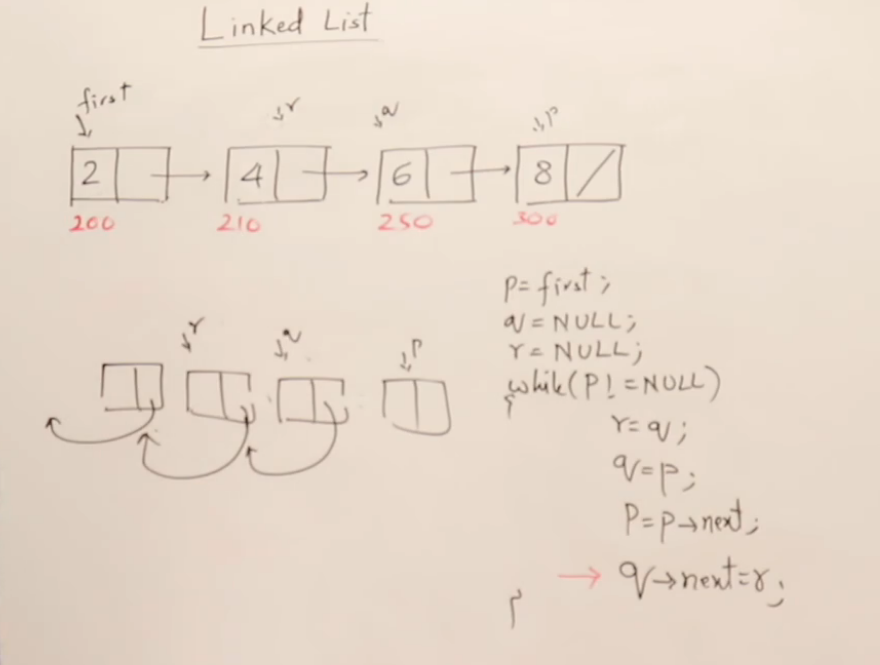 Linked List
first r q p
2 4 6 8
200 210 250 300
r q p
p= first;
q = NULL;
r = NULL;
while(P! = NULL)
{
r= q;
q=p;
P=p→next;
→ q→next=r;
}